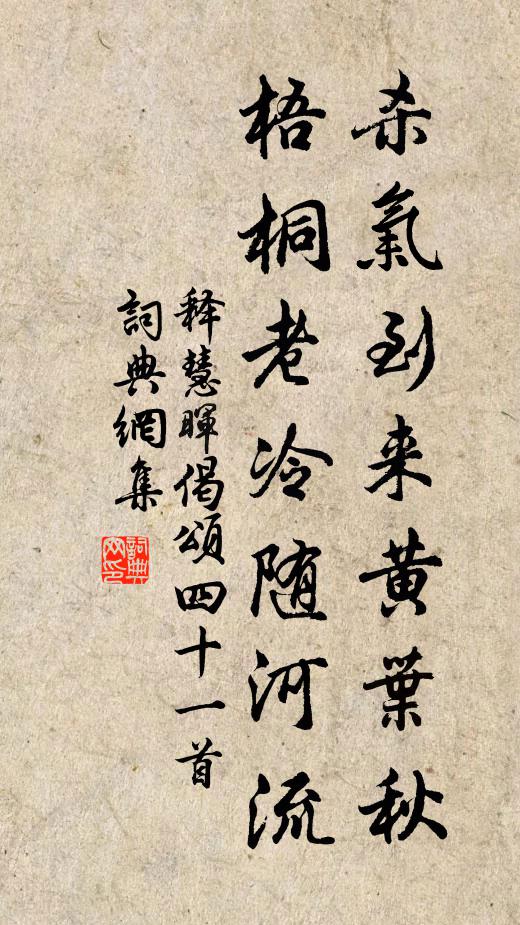 杀氣到来黄葉秋
梧桐老冷随河流
释慧暉偈頌四十一首
詞典網集
詞典網印